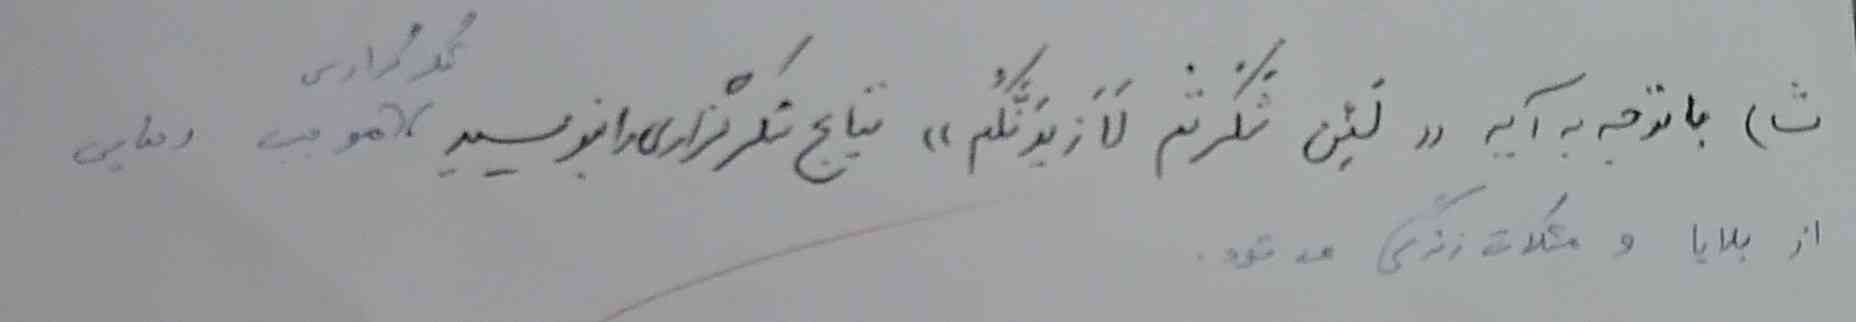 ث) باتوجه به آیه «لَئِن شَکَرتُم لَأَزیدَنَّکُم» نتایج شکرگزاری را بنویسید
شکرگزاری
موجب رهایی
از بلایا و مشکلات زندگی می شود.